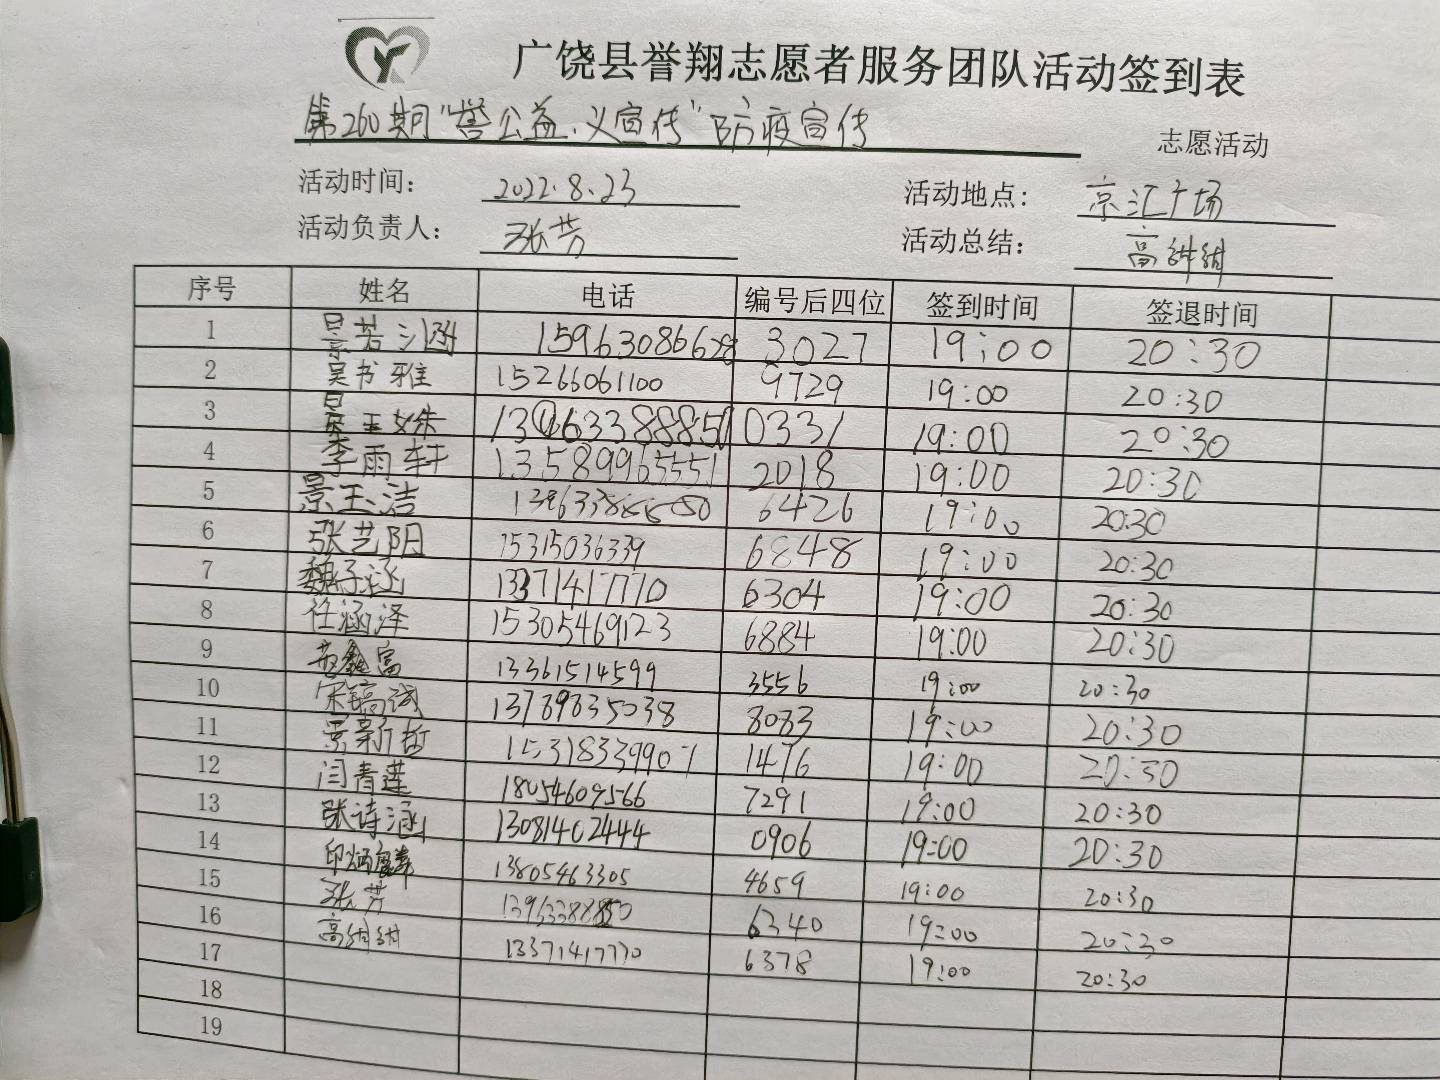 广饶县誉翔志愿者服务团队活动签到表
第260期“誉公益·义宣传”防疫宣传 志愿活动
活动时间： 2022.8.23 活动地点： 京汇广场
活动负责人： 张芳 活动总结： 高
序号 姓名 电话 编号后四位 签到时间 签退时间
1 景若涵 15963086628 3027 19:00 20:30
2 吴书雅 15266061100 9729 19:00 20:30
3 景玉姝 0331 19:00 20:30
4 李雨轩 13589965551 2018 19:00 20:30
5 景玉洁 6426 19:00 20:30
6 张艺阴 15315036339 6848 19:00 20:30
7 魏子涵 13371417770 6304 19:00 20:30
8 任涵泽 15305469123 6884 19:00 20:30
9 13361514599 3556 19:00 20:30
10 宋镐诚 13789835038 8083 19:00 20:30
11 景新哲 15318339907 1476 19:00 20:30
12 闫青莲 18054609566 7291 19:00 20:30
13 张诗涵 13081402444 0906 19:00 20:30
14 13805463305 4659 19:00 20:30
15 张芳 6340 19:00 20:30
16 高 13371417770 6378 19:00 20:30
17
18
19